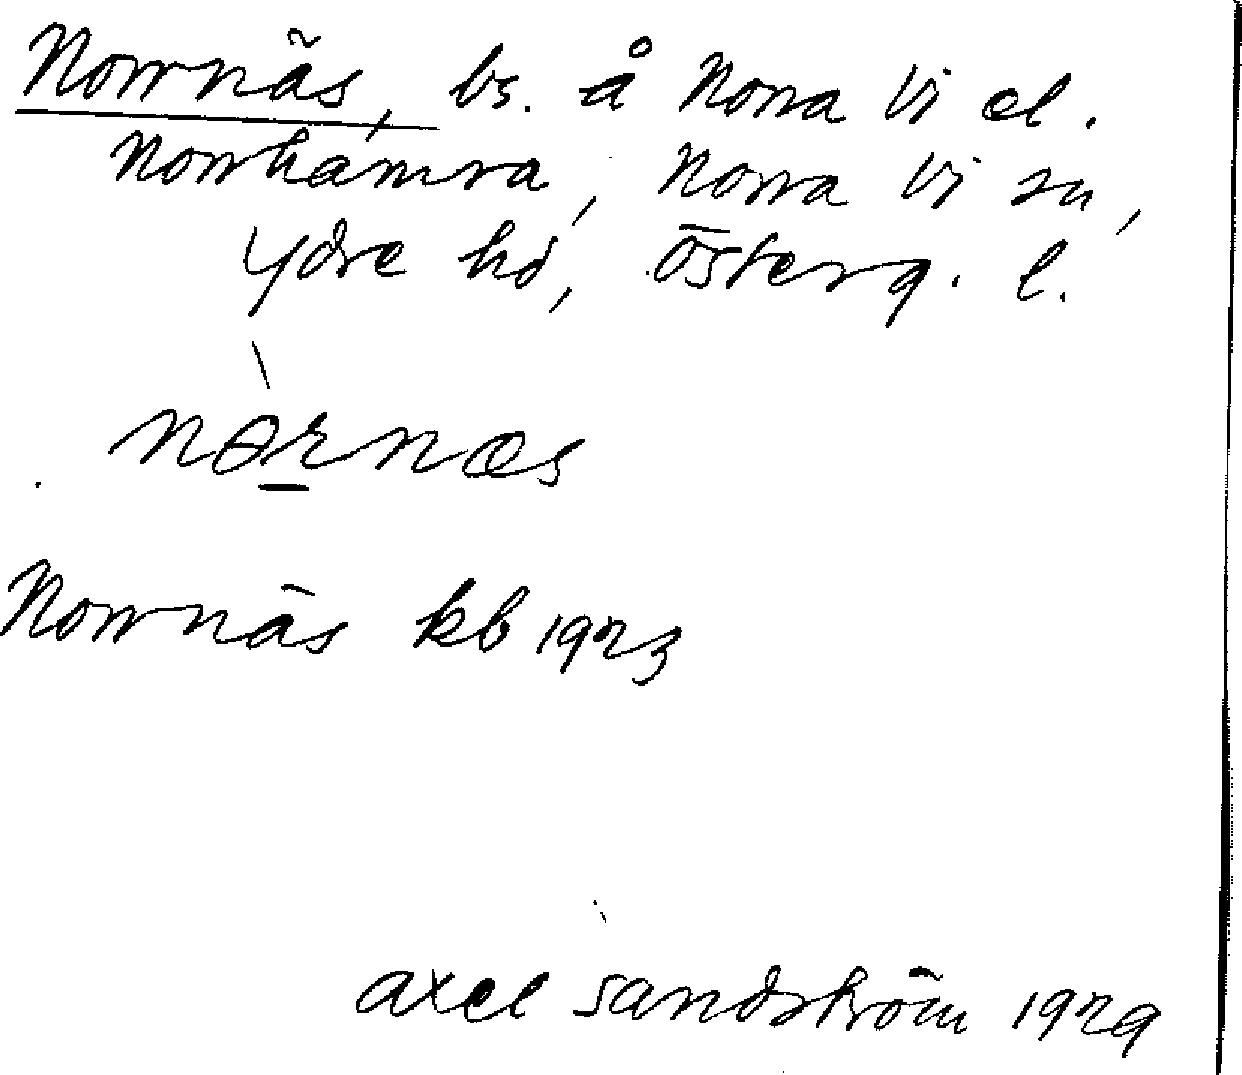 Norrnäs, bs. å Norra Vi el.
Norrhamra, Norra Vi sn,
Ydre hd, Österg. l.
nɵ̀rnæs
Norrnäs kb 1923
Axel Sandström 1929